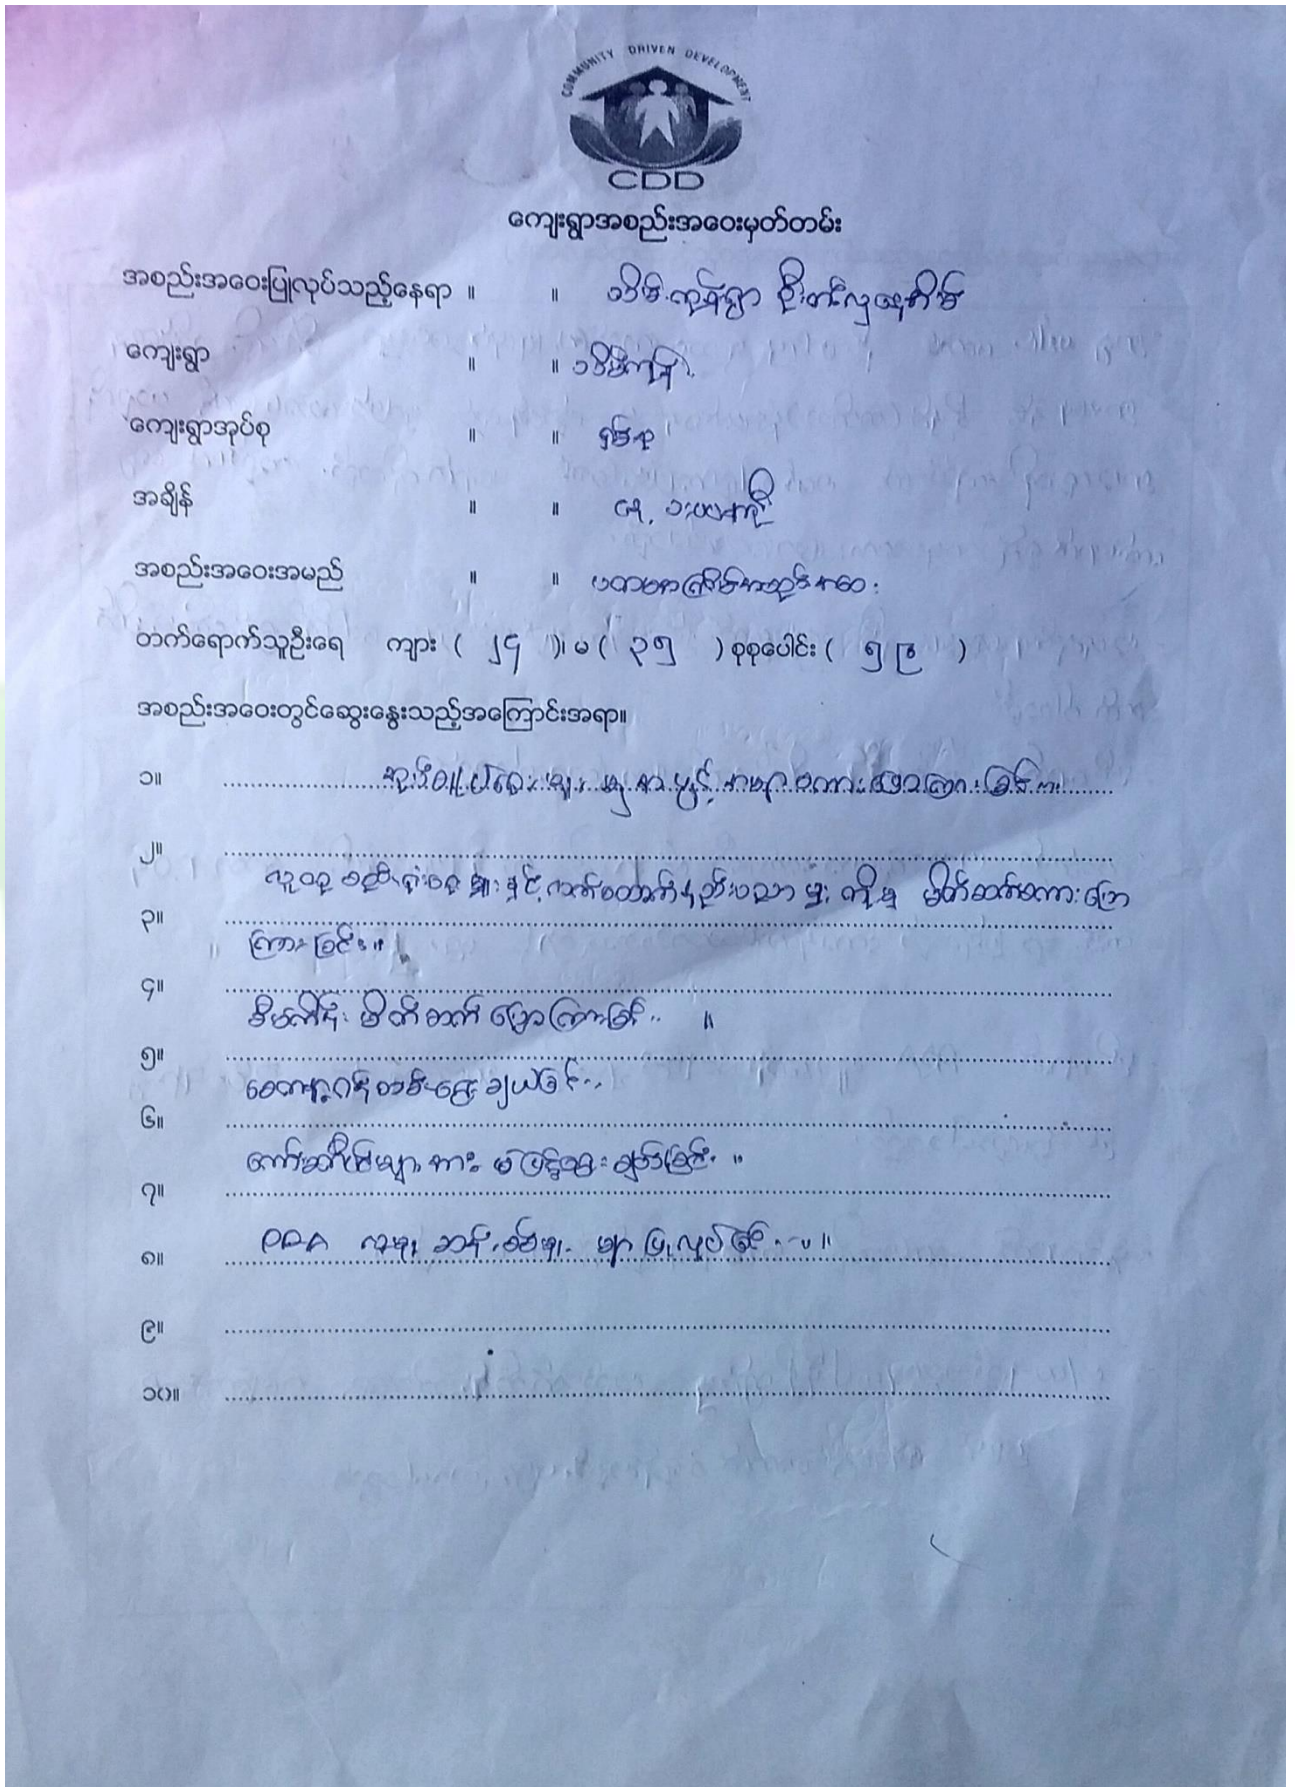 COMMUNITY DRIVEN DEVELOPMENT
CDD
ကျေးရွာအစည်းအဝေးမှတ်တမ်း
အစည်းအဝေးပြုလုပ်သည့်နေရာ ။ ။ သိမ်ကုန်းရွာ ဦးတင်လှနေအိမ်
ကျေးရွာ ။ ။ သိမ်ကုန်း
ကျေးရွာအုပ်စု ။ ။
အချိန် ။ ။ နေ့ ၁း၀၀နာရီ
အစည်းအဝေးအမည် ။ ။ ပထမအကြိမ်အစည်းအဝေး
တက်ရောက်သူဦးရေ ကျား ( ၂၄ )၊ မ ( ၃၅ ) စုစုပေါင်း ( ၅၉ )
အစည်းအဝေးတွင်ဆွေးနွေးသည့်အကြောင်းအရာ။
၁။ အမှာစကားပြောကြားခြင်း။
၂။
လူထု နှင့် လက်ထောက်နည်းပညာ မှူး တို့မှ မိတ်ဆက်စကားပြော
၃။
ကြားခြင်း။
၄။
စီမံကိန်း မိတ်ဆက် ပြောကြားခြင်း ။
၅။
စေတနာ့ဝန်ထမ်းရွေးချယ်ခြင်း
၆။
ကော်မတီဝင်များအား ရွေးချယ်ခြင်း ။
၇။
PRA ဆန်းစစ်မှု များ ပြုလုပ်ခြင်း ။
၈။
၉။
၁၀။